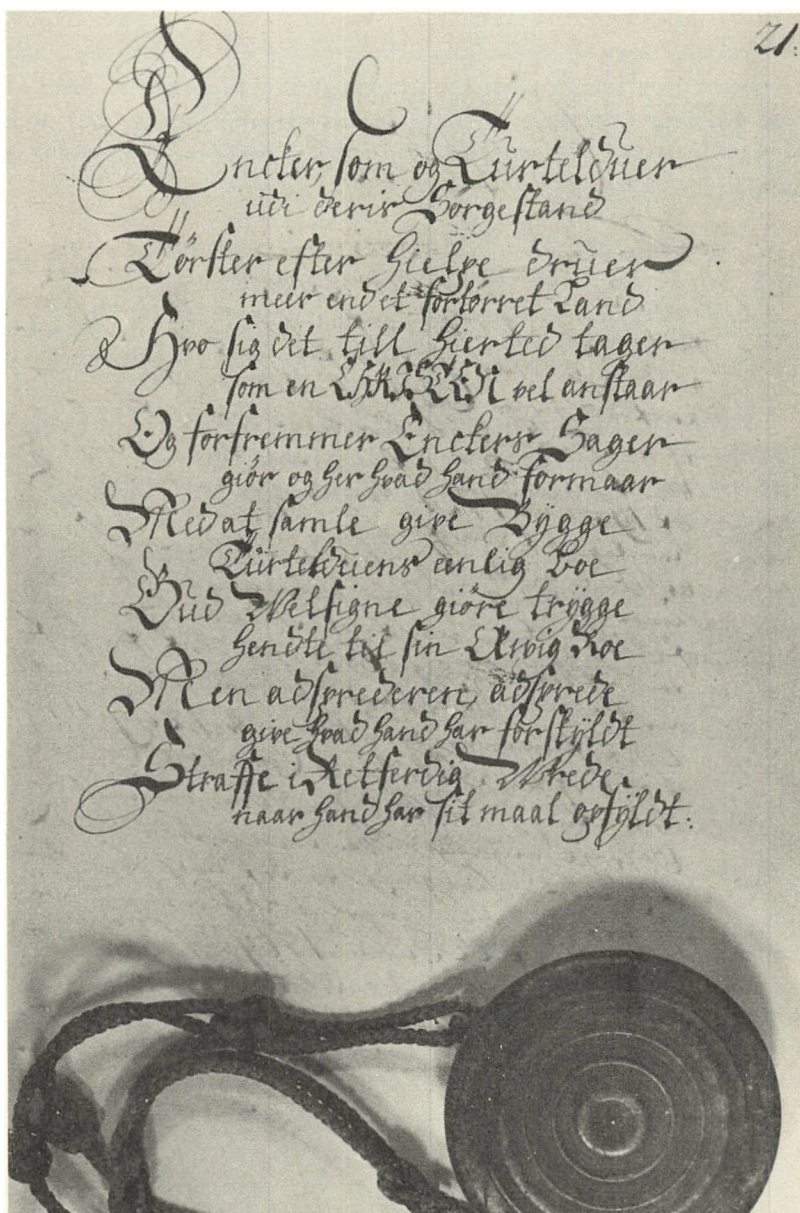 21.
Encker, som og Turtelduer
udi deris Sorgestand
Tørster efter Hielpe druer
meer end et fortørret Land
Hvo sig det till Hierted tager
som en CHRISTEN vel anstaar
Og forfremmer Enckers Sager
giør og her hvad hand formaar
Med at samle give Bygge
Turtelduens eenlig Boe
Gud Welsigne giøre trygge
hendte til sin Ewig Roe
Men adsprederen adsprede
give hvad hand har forskyldt
Straffe i Retferdig Wrede
naar hand har sit maal opfyldt.